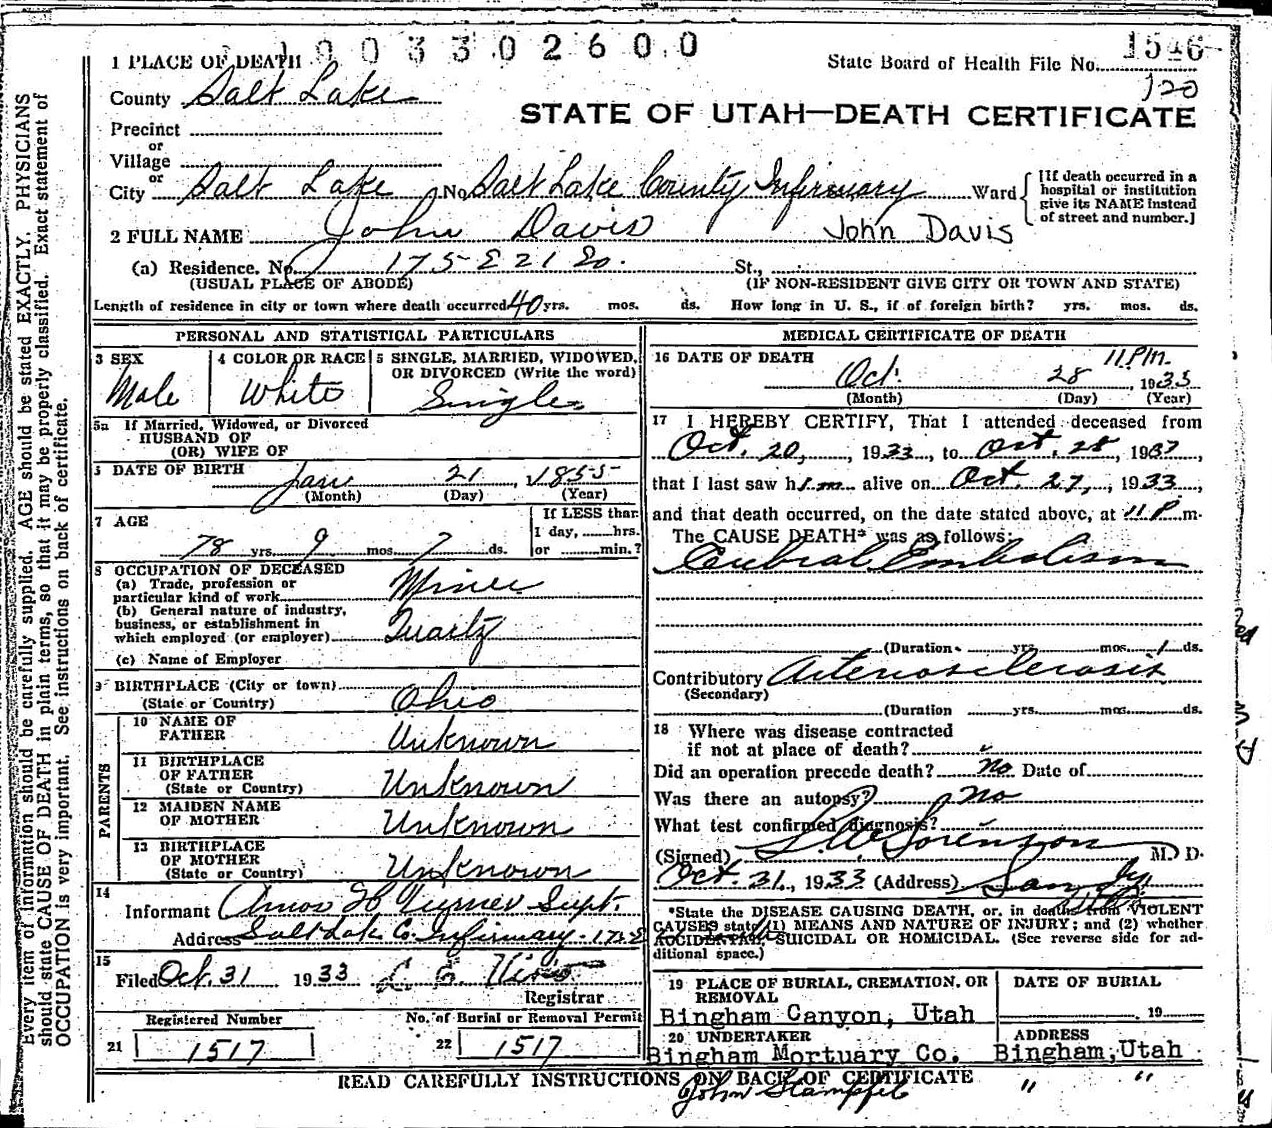 1 9 0 3 3 0 2 6 0 0
1546
1 PLACE OF DEATH
State Board of Health File No.
120
County Salt Lake
STATE OF UTAH—DEATH CERTIFICATE
Precinct
or
Village
or
City Salt Lake No. Salt Lake County Infirmary Ward
[If death occurred in a hospital or institution give its NAME instead of street and number.]
2 FULL NAME John Davis John Davis
(a) Residence. No. 175 E 21 So. St.,
(USUAL PLACE OF ABODE) (IF NON-RESIDENT GIVE CITY OR TOWN AND STATE)
Length of residence in city or town where death occurred 40 yrs. mos. ds. How long in U. S., if of foreign birth? yrs. mos. ds.
PERSONAL AND STATISTICAL PARTICULARS
3 SEX
Male
4 COLOR OR RACE
White
5 SINGLE, MARRIED, WIDOWED, OR DIVORCED (Write the word)
Single
5a If Married, Widowed, or Divorced
HUSBAND OF
(OR) WIFE OF
DATE OF BIRTH Jan 21, 1855
(Month) (Day) (Year)
7 AGE
78 yrs. 9 mos. 7 ds.
If LESS than
1 day, hrs.
or min.?
8 OCCUPATION OF DECEASED
(a) Trade, profession or
particular kind of work Miner
(b) General nature of industry,
business, or establishment in
which employed (or employer) Quartz
(c) Name of Employer
9 BIRTHPLACE (City or town)
(State or Country) Ohio
PARENTS
10 NAME OF
FATHER Unknown
11 BIRTHPLACE
OF FATHER
(State or Country) Unknown
12 MAIDEN NAME
OF MOTHER Unknown
13 BIRTHPLACE
OF MOTHER
(State or Country) Unknown
14
Informant Amos H Turner Supt.
Address Salt Lake Co. Infirmary
15
Filed Oct. 31 1933
Registrar
Registered Number
21 1517
No. of Burial or Removal Permit
22 1517
MEDICAL CERTIFICATE OF DEATH
16 DATE OF DEATH 11 P.m.
Oct. 28, 1933
(Month) (Day) (Year)
17 I HEREBY CERTIFY, That I attended deceased from
Oct. 20, 1933, to Oct. 28, 1937,
that I last saw him alive on Oct. 27, 1933,
and that death occurred, on the date stated above, at 11 P. m.
The CAUSE DEATH* was as follows:
Cerebral Embolism
(Duration yrs. mos. 1 ds.
Contributory Arteriosclerosis
(Secondary)
(Duration yrs. mos. ds.
18 Where was disease contracted
if not at place of death?
Did an operation precede death? no Date of
Was there an autopsy? no
What test confirmed diagnosis?
(Signed) Sorenson M. D.
Oct. 31, 1933 (Address)
*State the DISEASE CAUSING DEATH, or, in deaths from VIOLENT
CAUSES state (1) MEANS AND NATURE OF INJURY; and (2) whether
ACCIDENTAL, SUICIDAL OR HOMICIDAL. (See reverse side for ad-
ditional space.)
19 PLACE OF BURIAL, CREMATION, OR
REMOVAL
Bingham Canyon, Utah
DATE OF BURIAL
19
20 UNDERTAKER
Bingham Mortuary Co.
ADDRESS
Bingham, Utah
READ CAREFULLY INSTRUCTIONS ON BACK OF CERTIFICATE
John Stampfel " "
Every item of information should be carefully supplied. AGE should be stated EXACTLY. PHYSICIANS
should state CAUSE OF DEATH in plain terms, so that it may be properly classified. Exact statement of
OCCUPATION is very important. See instructions on back of certificate.